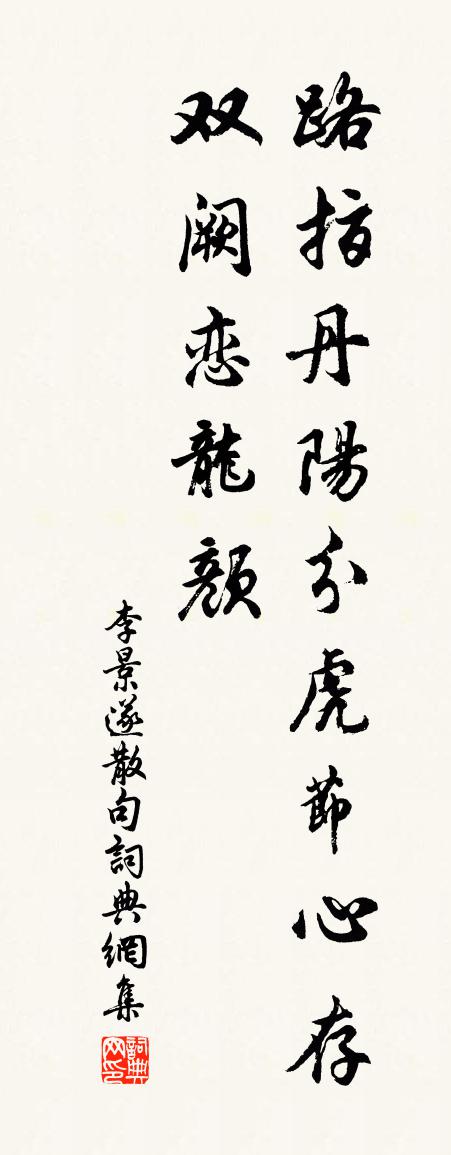 路指丹陽分虎節心存
双阙恋龍顔
李景遂散句詞典網集
詞典网印